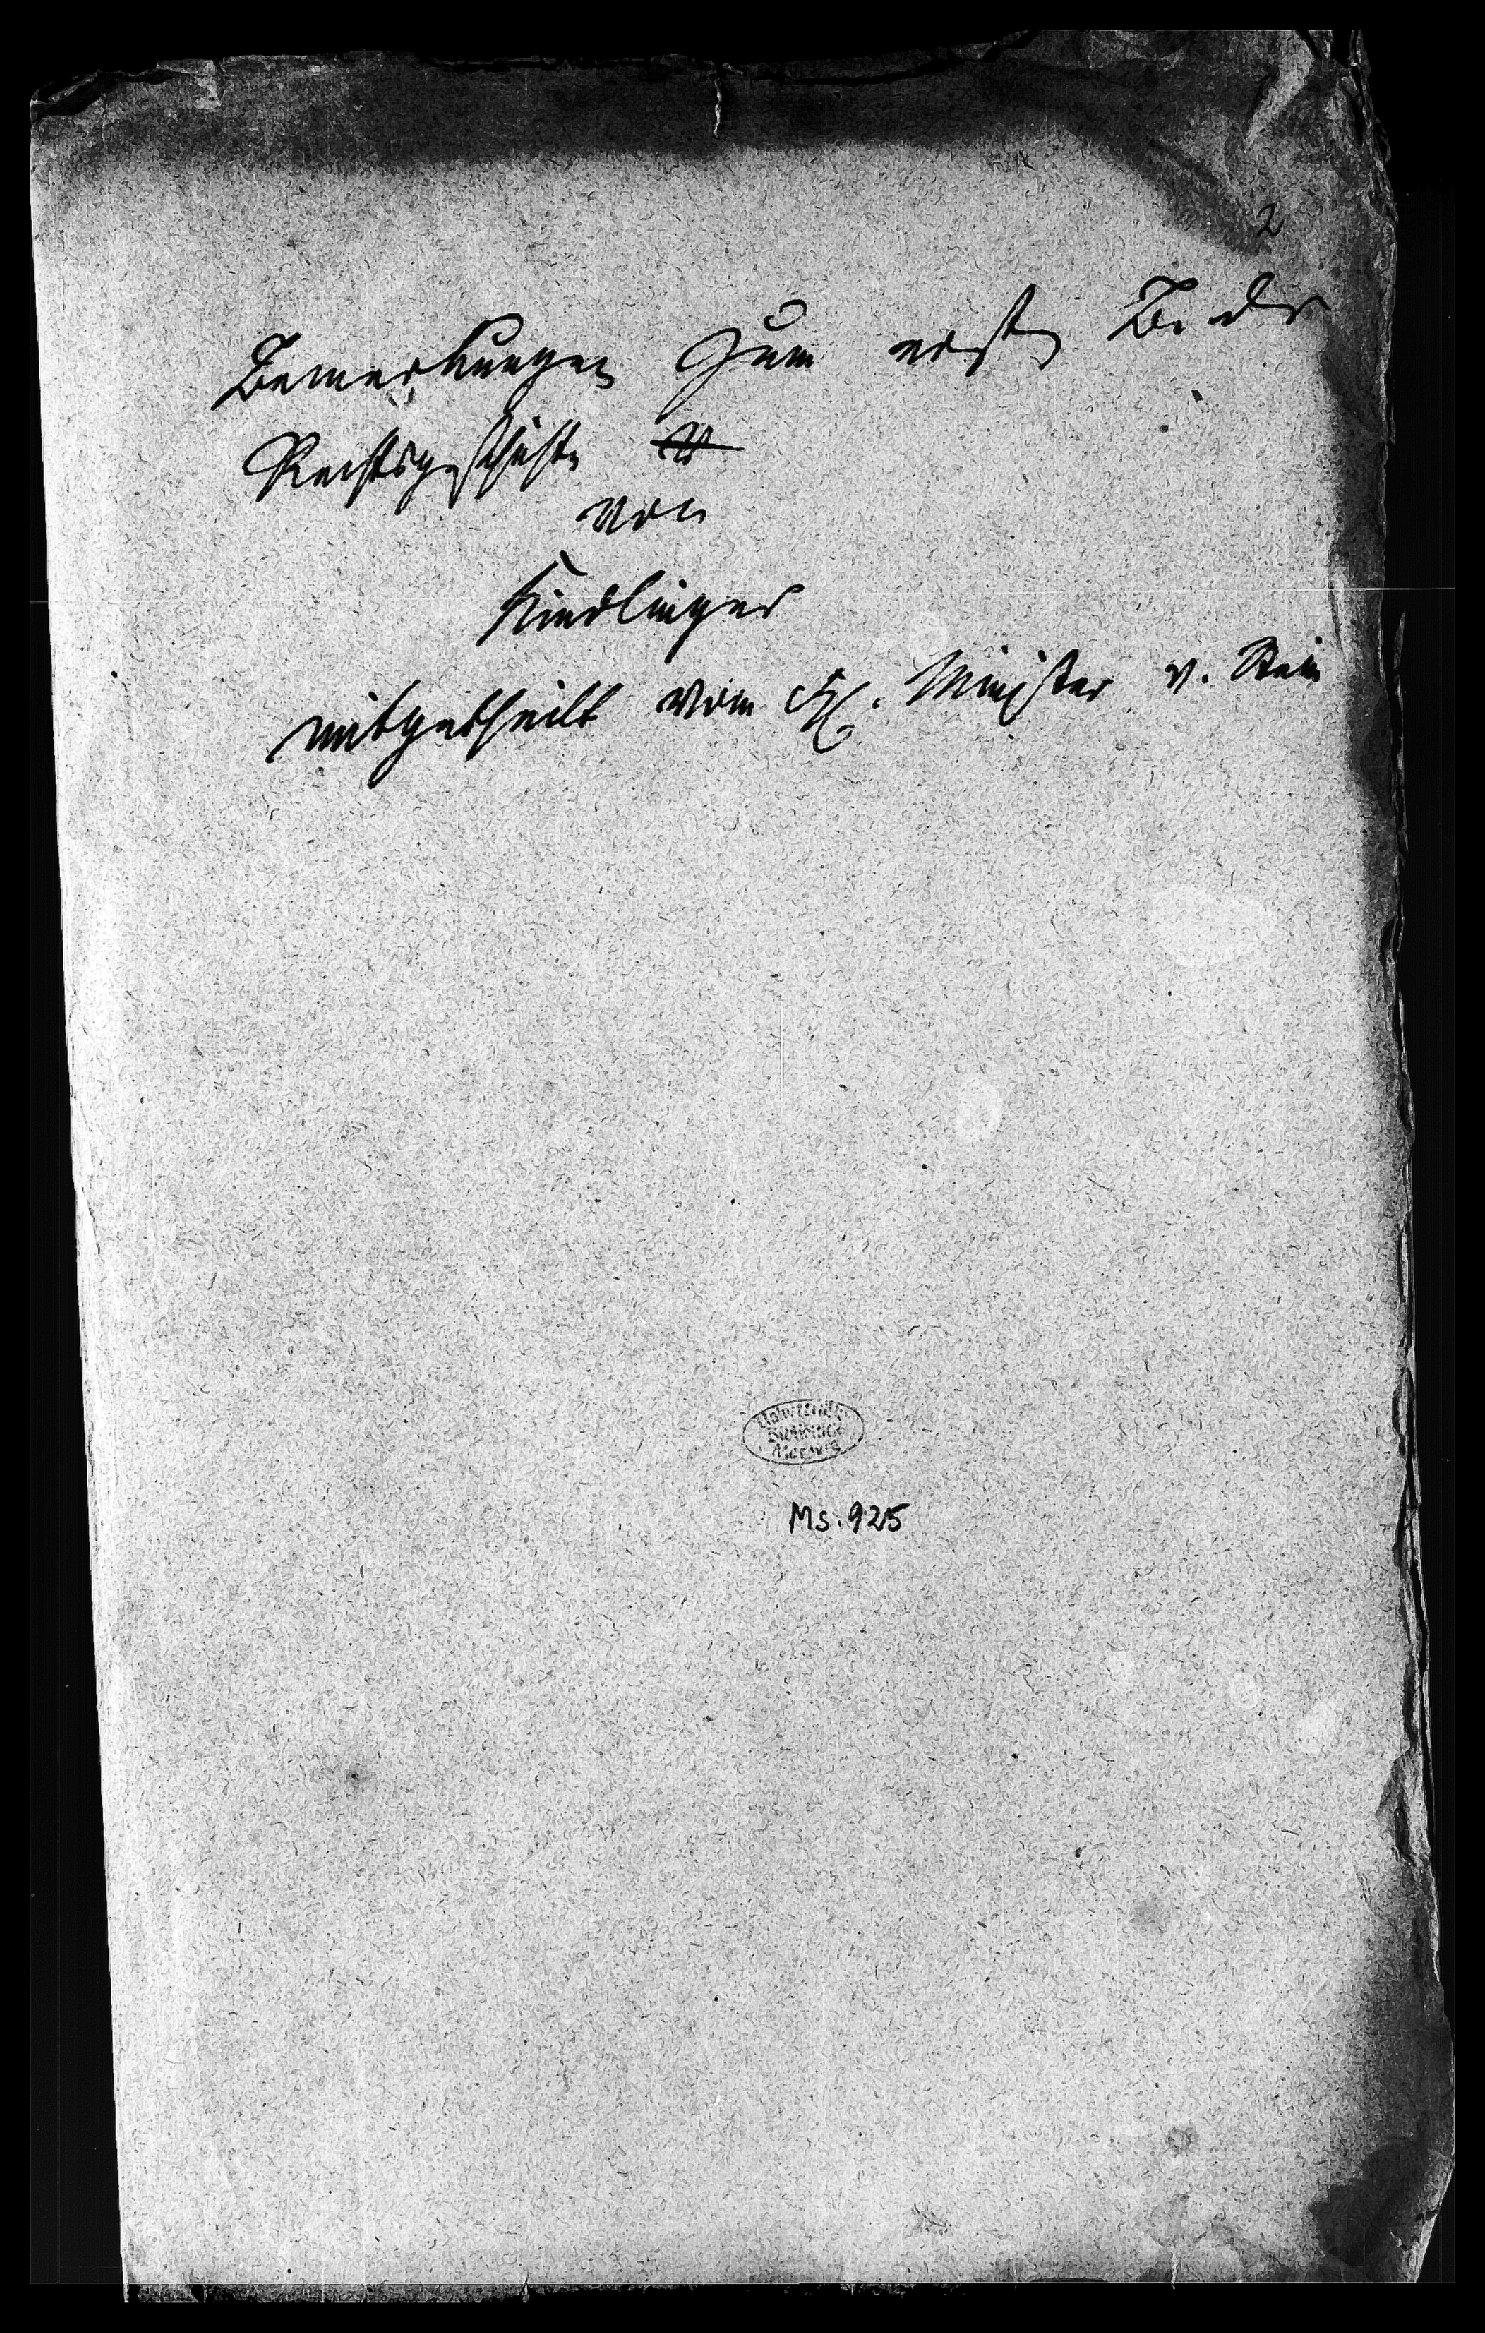 2
Bemerkungen zum ersten B. der
Rechtsgeschichte
von
Kindlinger
mitgetheilt vom H. Minister v. Stein
Universitäts
Bibliothek
Marburg
Ms. 925